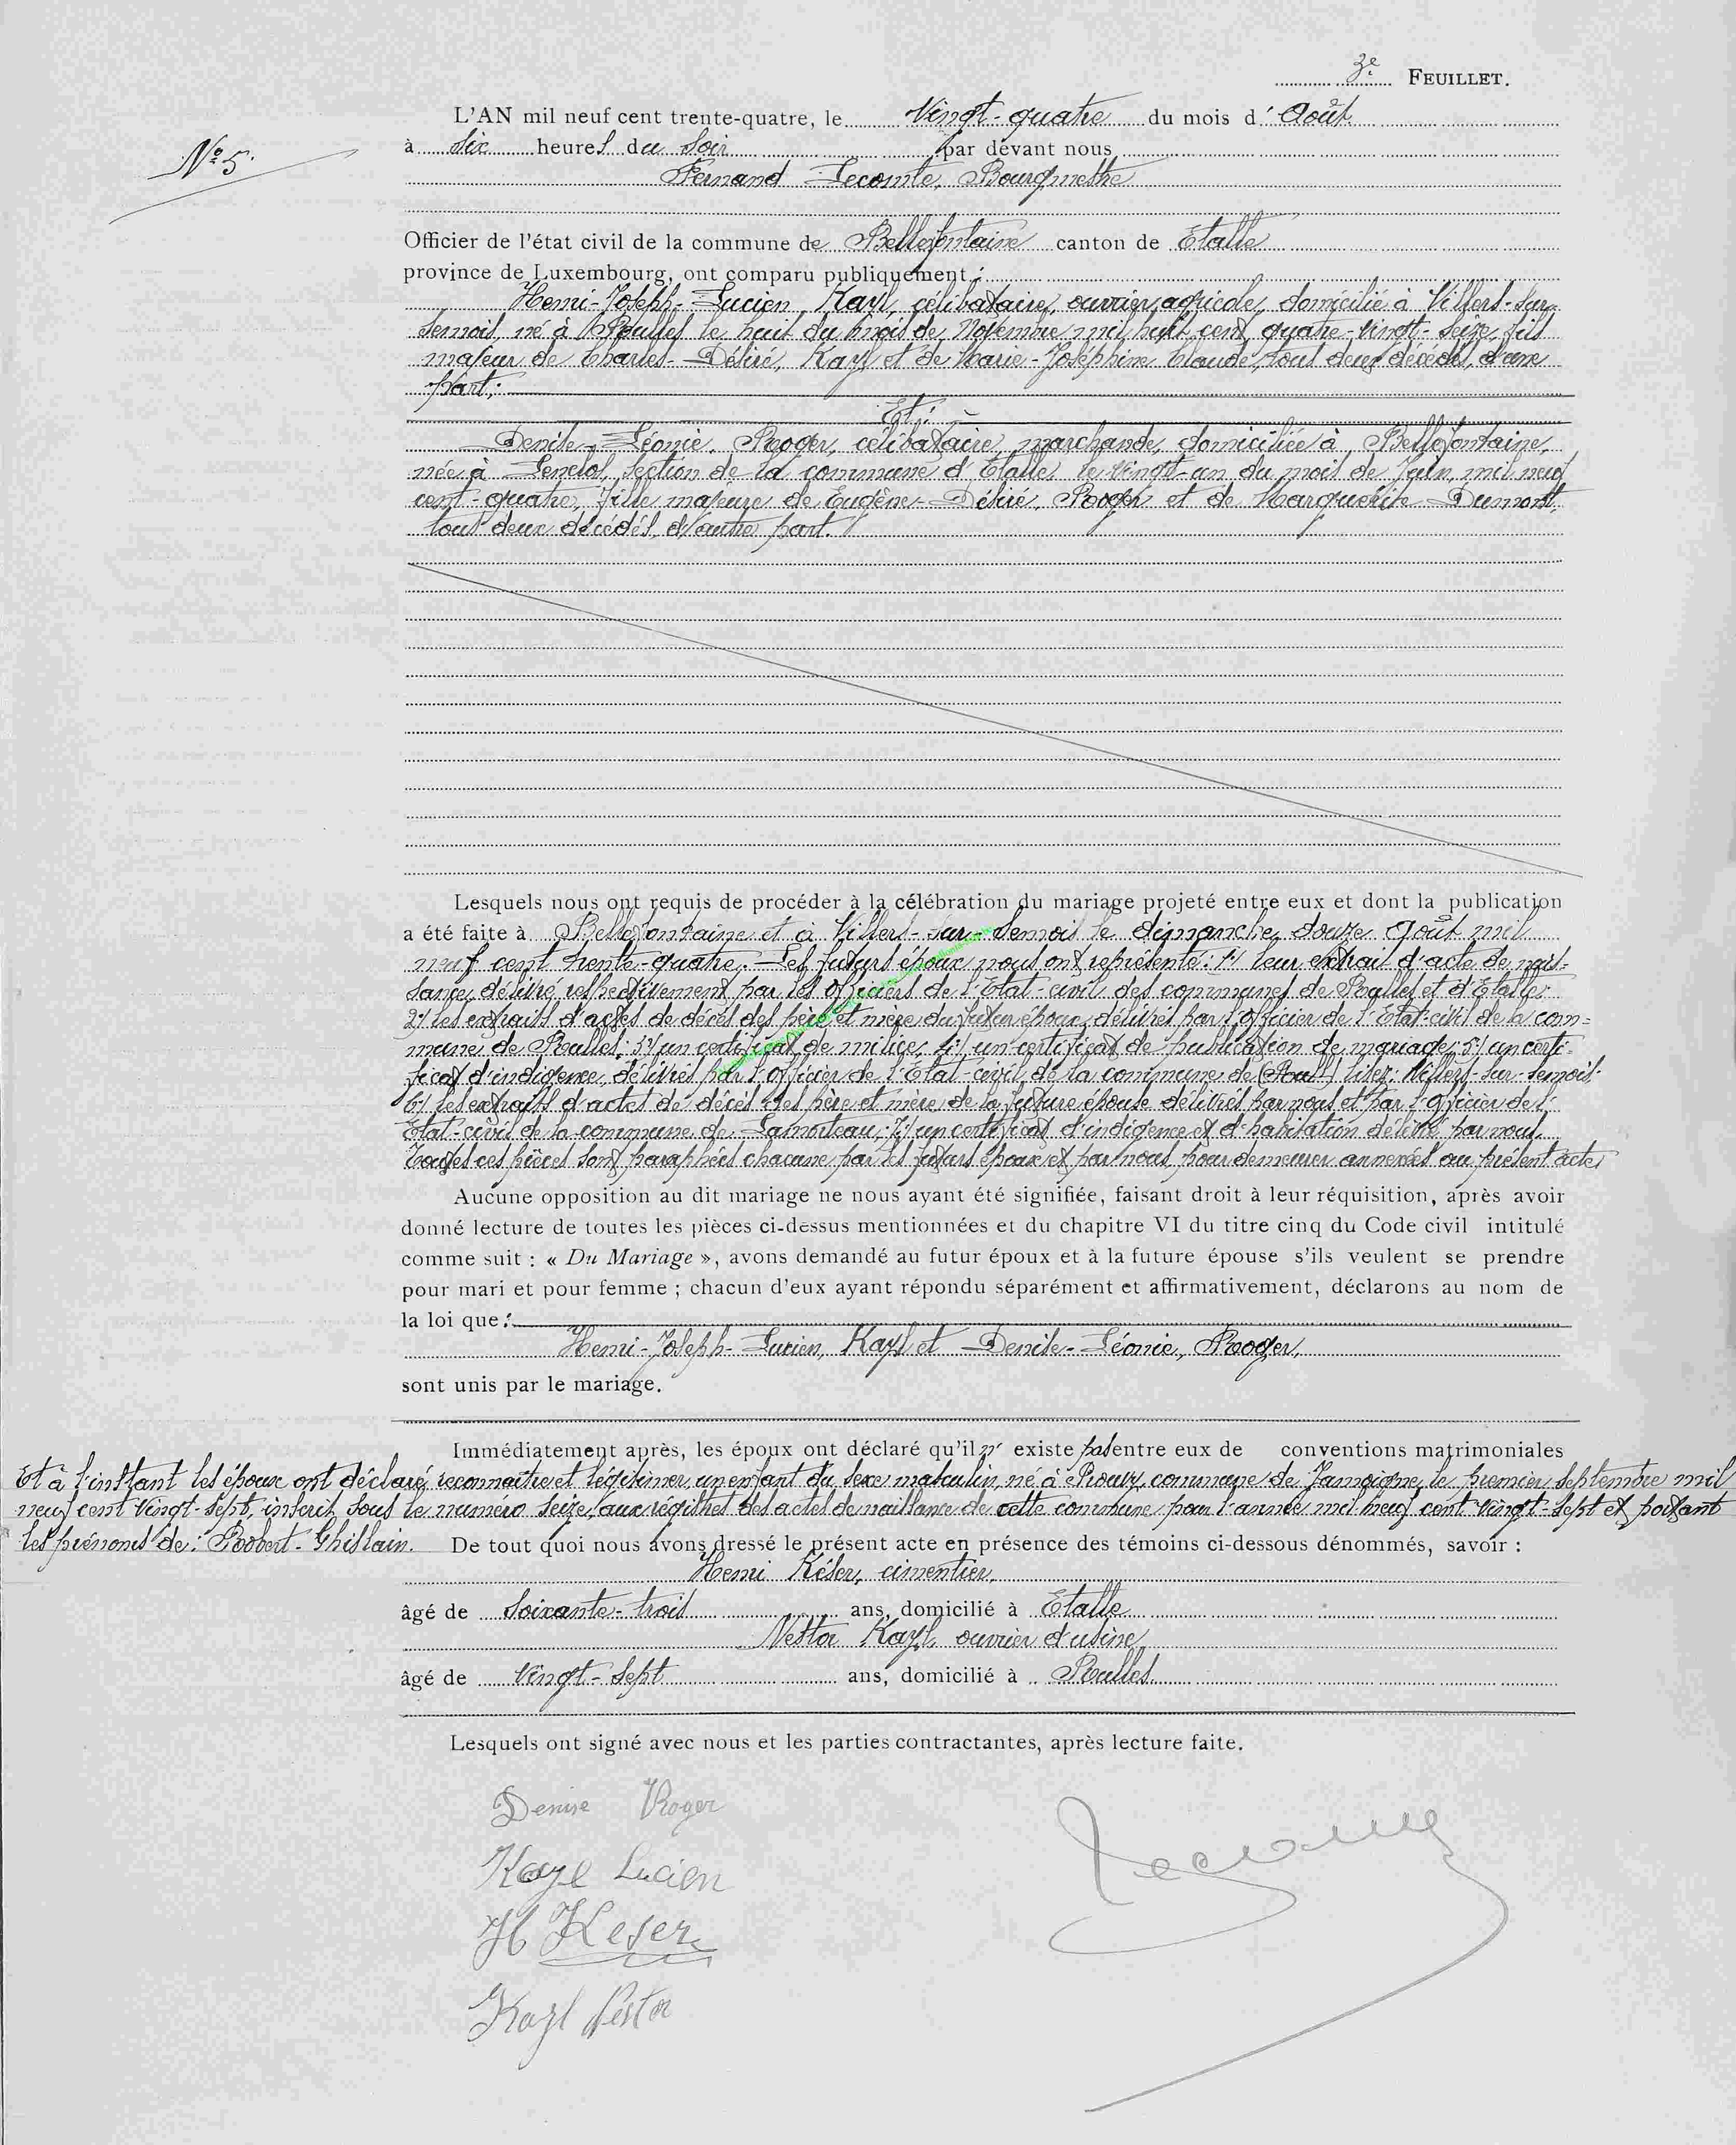 3e FEUILLET.
L'AN mil neuf cent trente-quatre, le Vingt-quatre du mois d' Août
N° 5.
à six heures du soir par devant nous
Fernand Lecomte, Bourgmestre
Officier de l'état civil de la commune de Bellefontaine canton de Etalle
province de Luxembourg, ont comparu publiquement :
Henri-Joseph-Lucien, Kayl, célibataire, ouvrier agricole, domicilié à Villers-sur-
Semois, né à Rulles le huit du mois de Novembre mil huit cent quatre-vingt-seize, fils
majeur de Charles-Désiré, Kayl et de Marie-Joséphine Claude, tous deux décédés, d'une
part;
Et:
Denise-Léonie, Roger, célibataire, marchande, domiciliée à Bellefontaine,
née à Lenclos, section de la commune d'Etalle, le vingt-un du mois de Juin, mil neuf
cent-quatre, fille majeure de Eugène-Désiré, Roger et de Marguerite Dumont,
tous deux décédés, d'autre part.
Lesquels nous ont requis de procéder à la célébration du mariage projeté entre eux et dont la publication
a été faite à Bellefontaine et à Villers-sur-Semois le dimanche, douze Août mil
neuf cent trente-quatre. Les futurs époux nous ont représenté: 1°/ leur extrait d'acte de nais-
sance, délivré respectivement par les officiers de l'Etat-civil des communes de Rulles et d'Etalle;
2°/ les extraits d'actes de décès des père et mère du futur époux, délivrés par l'officier de l'Etat-civil de la com-
mune de Rulles; 3°/ un certificat de milice, 4°/ un certificat de publication de mariage, 5°/ un certi-
ficat d'indigence, délivrés par l'officier de l'Etat-civil de la commune de (Rull) lisez: Villers-sur-Semois;
6°/ les extraits d'actes de décès des père et mère de la future épouse délivrés par nous et par l'officier de l'
Etat-civil de la commune de Lamorteau; 7°/ un certificat d'indigence et d'habitation délivré par nous.
Toutes ces pièces sont paraphées chacune par les futurs époux et par nous, pour demeurer annexées au présent acte,
Aucune opposition au dit mariage ne nous ayant été signifiée, faisant droit à leur réquisition, après avoir
donné lecture de toutes les pièces ci-dessus mentionnées et du chapitre VI du titre cinq du Code civil intitulé
comme suit : « Du Mariage », avons demandé au futur époux et à la future épouse s'ils veulent se prendre
pour mari et pour femme ; chacun d'eux ayant répondu séparément et affirmativement, déclarons au nom de
la loi que:
Henri-Joseph-Lucien, Kayl et Denise-Léonie, Roger,
sont unis par le mariage.
Immédiatement après, les époux ont déclaré qu'il n' existe pas entre eux de conventions matrimoniales
Et à l'instant les époux ont déclaré reconnaître et légitimer un enfant du sexe masculin, né à Prouvy, commune de Jamoigne, le premier septembre mil
neuf cent vingt-sept, inscrit sous le numéro seize, aux régistres des actes de naissance de cette commune pour l'année mil neuf cent vingt-sept et portant
les prénoms de: Robert-Ghislain. De tout quoi nous avons dressé le présent acte en présence des témoins ci-dessous dénommés, savoir :
Henri Késer, cimentier,
âgé de soixante-trois ans, domicilié à Etalle
Nestor Kayl, ouvrier d'usine,
âgé de vingt-sept ans, domicilié à Rulles
Lesquels ont signé avec nous et les parties contractantes, après lecture faite.
Denise Roger
Kayl Lucien
H Keser
Kayl Nestor